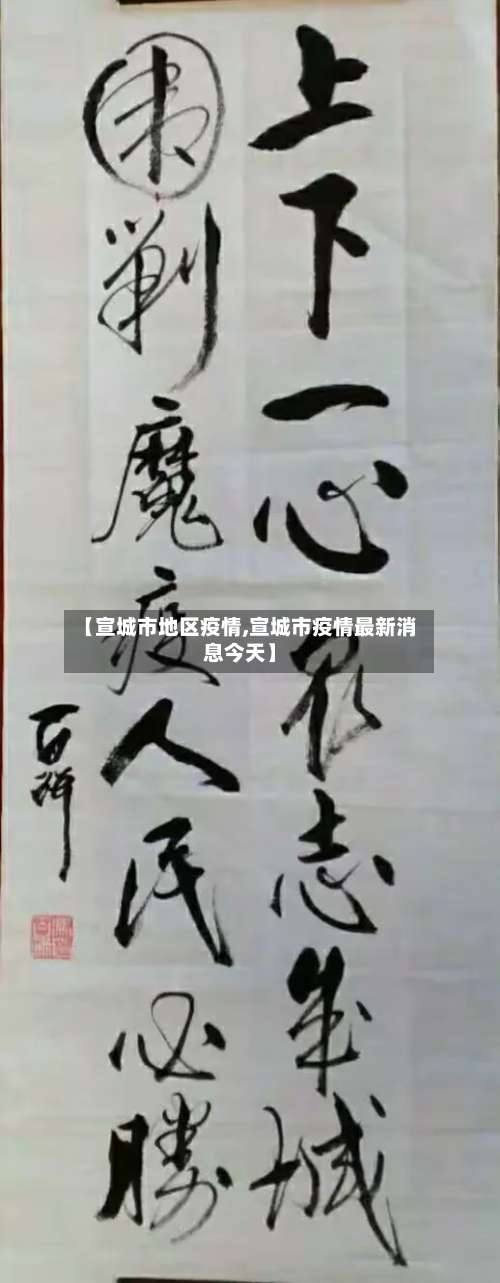 上下一心眾志成城
圍剿魔疫人民必勝
【宣城市地区疫情,宣城市疫情最新消
息今天】